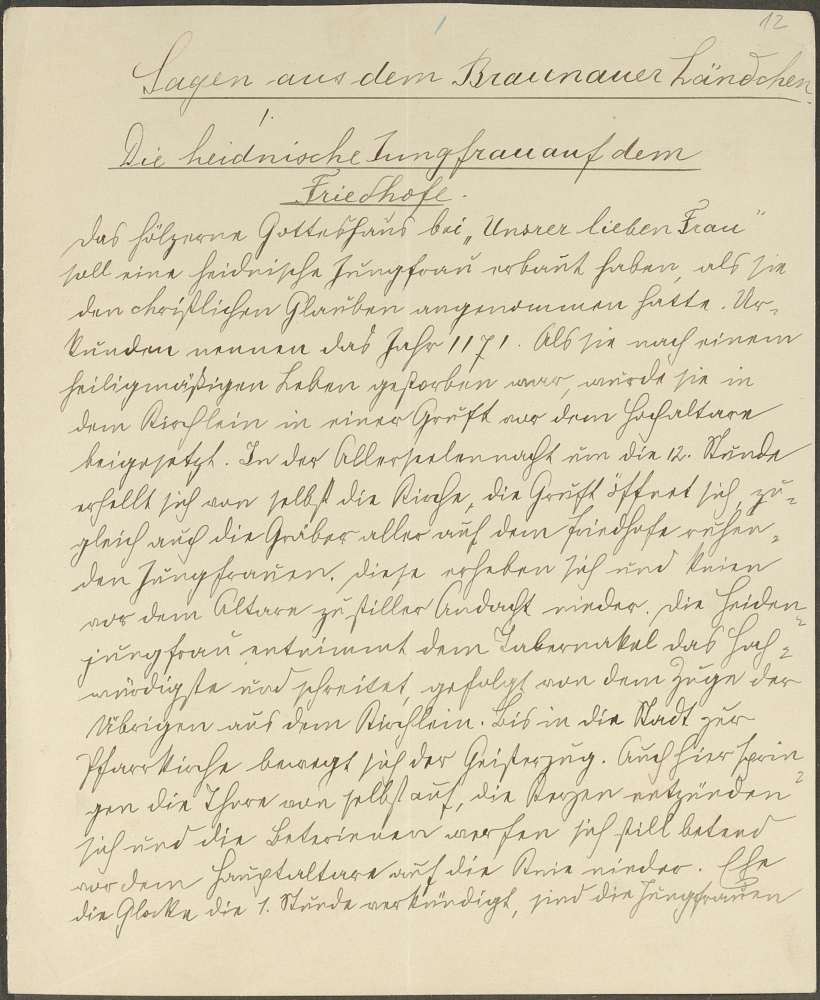 12
Sagen aus dem Braunauer Ländchen.
1.
Die heidnische Jungfrau auf dem
Friedhofe.
Das hölzerne Gotteshaus bei „Unsrer lieben Frau"
soll eine heidnische Jungfrau erbaut haben, als sie
den christlichen Glauben angenommen hatte. Ur-
kunden nennen das Jahr 1171. Als sie nach einem
heiligmäßigen Leben gestorben war, wurde sie in
dem Kirchlein in einer Gruft vor dem Hochaltare
beigesetzt. In der Allerseelennacht um die 12. Stunde
erhellt sich von selbst die Kirche, die Gruft öffnet sich, zu-
gleich auch die Gräber aller auf dem Friedhofe ruhen-
den Jungfrauen. Diese erheben sich und knien
vor dem Altare zu stiller Andacht nieder. Die Heiden-
jungfrau entnimmt dem Tabernakel das Hoch-
würdigste und schreitet, gefolgt von dem Zuge der
Übrigen aus dem Kirchlein. Bis in die Stadt zur
Pfarrkirche bewegt sich der Geisterzug. Auch hier sprin-
gen die Thore von selbst auf, die Kerzen entzünden
sich und die Beterinnen werfen sich still betend
vor dem Hauptaltare auf die Knie nieder. Ehe
die Glocke die 1. Stunde verkündigt, sind die Jungfrauen